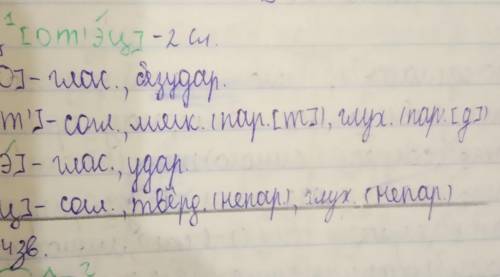 1 [от'э́ц] - 2 сл.
О] - глас., безудар.
т'] - согл., мягк. (пар. [т]), глух. (пар. [д])
Э́] - глас., удар.
ц] - согл., твёрд. (непар.), глух. (непар.)
4 зв.